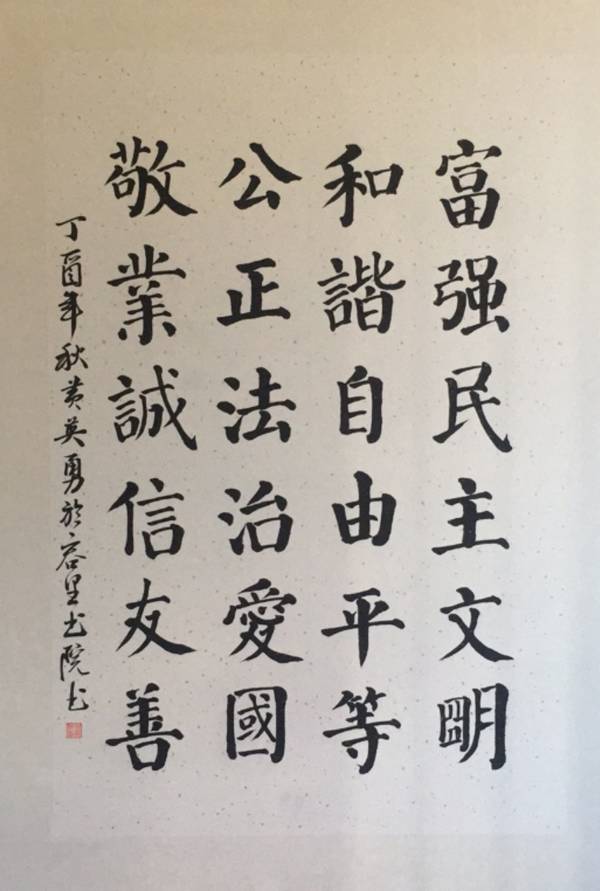 富强民主文明
和諧自由平等
公正法治愛國
敬業誠信友善
丁酉年秋黄英勇於容里书院书